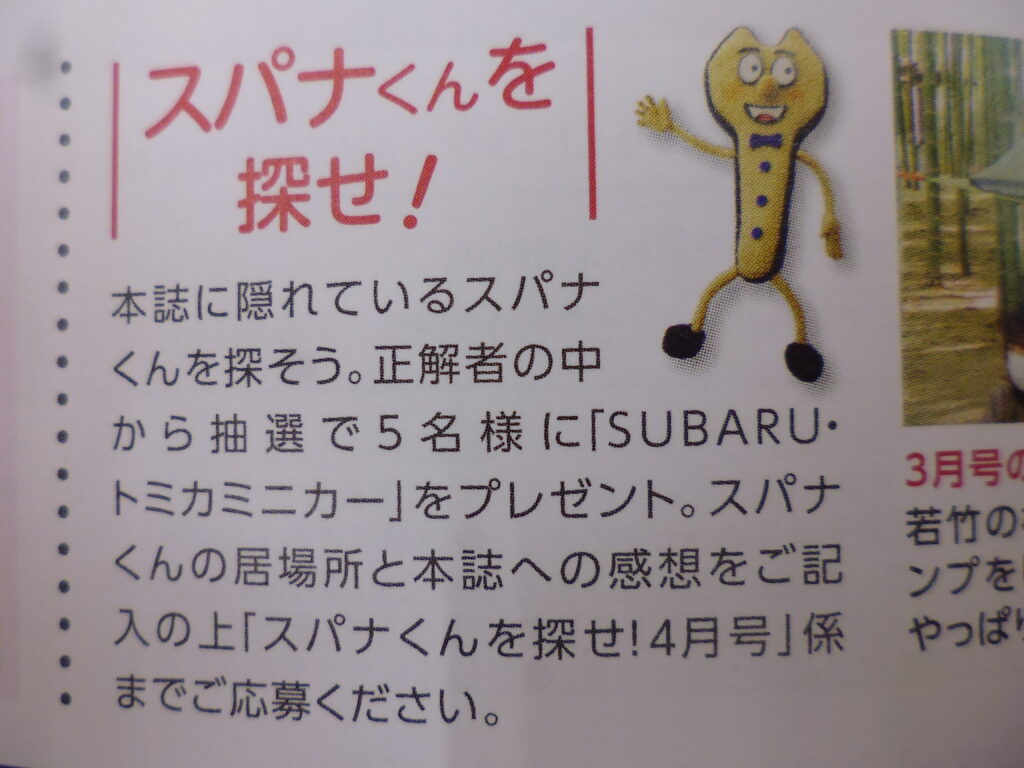 スパナくんを
探せ!
本誌に隠れているスパナ
くんを探そう。正解者の中
から抽選で5名様に「SUBARU・
トミカミニカー」をプレゼント。スパナ
くんの居場所と本誌への感想をご記
入の上「スパナくんを探せ!4月号」係
までご応募ください。
3月号の
若竹の
ンプを
やっぱり